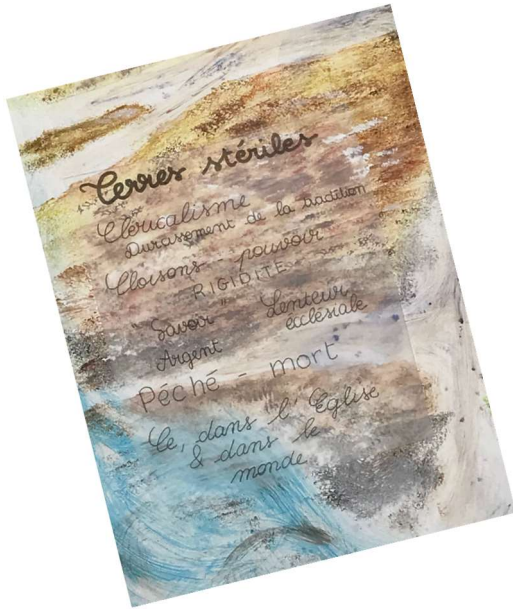 Terres stériles
Cléricalisme
Durcissement de la tradition
Cloisons - pouvoir
RIGIDITÉ
Savoir Lenteur
Argent ecclésiale
Péché - mort
dans l'Église
& dans le
monde